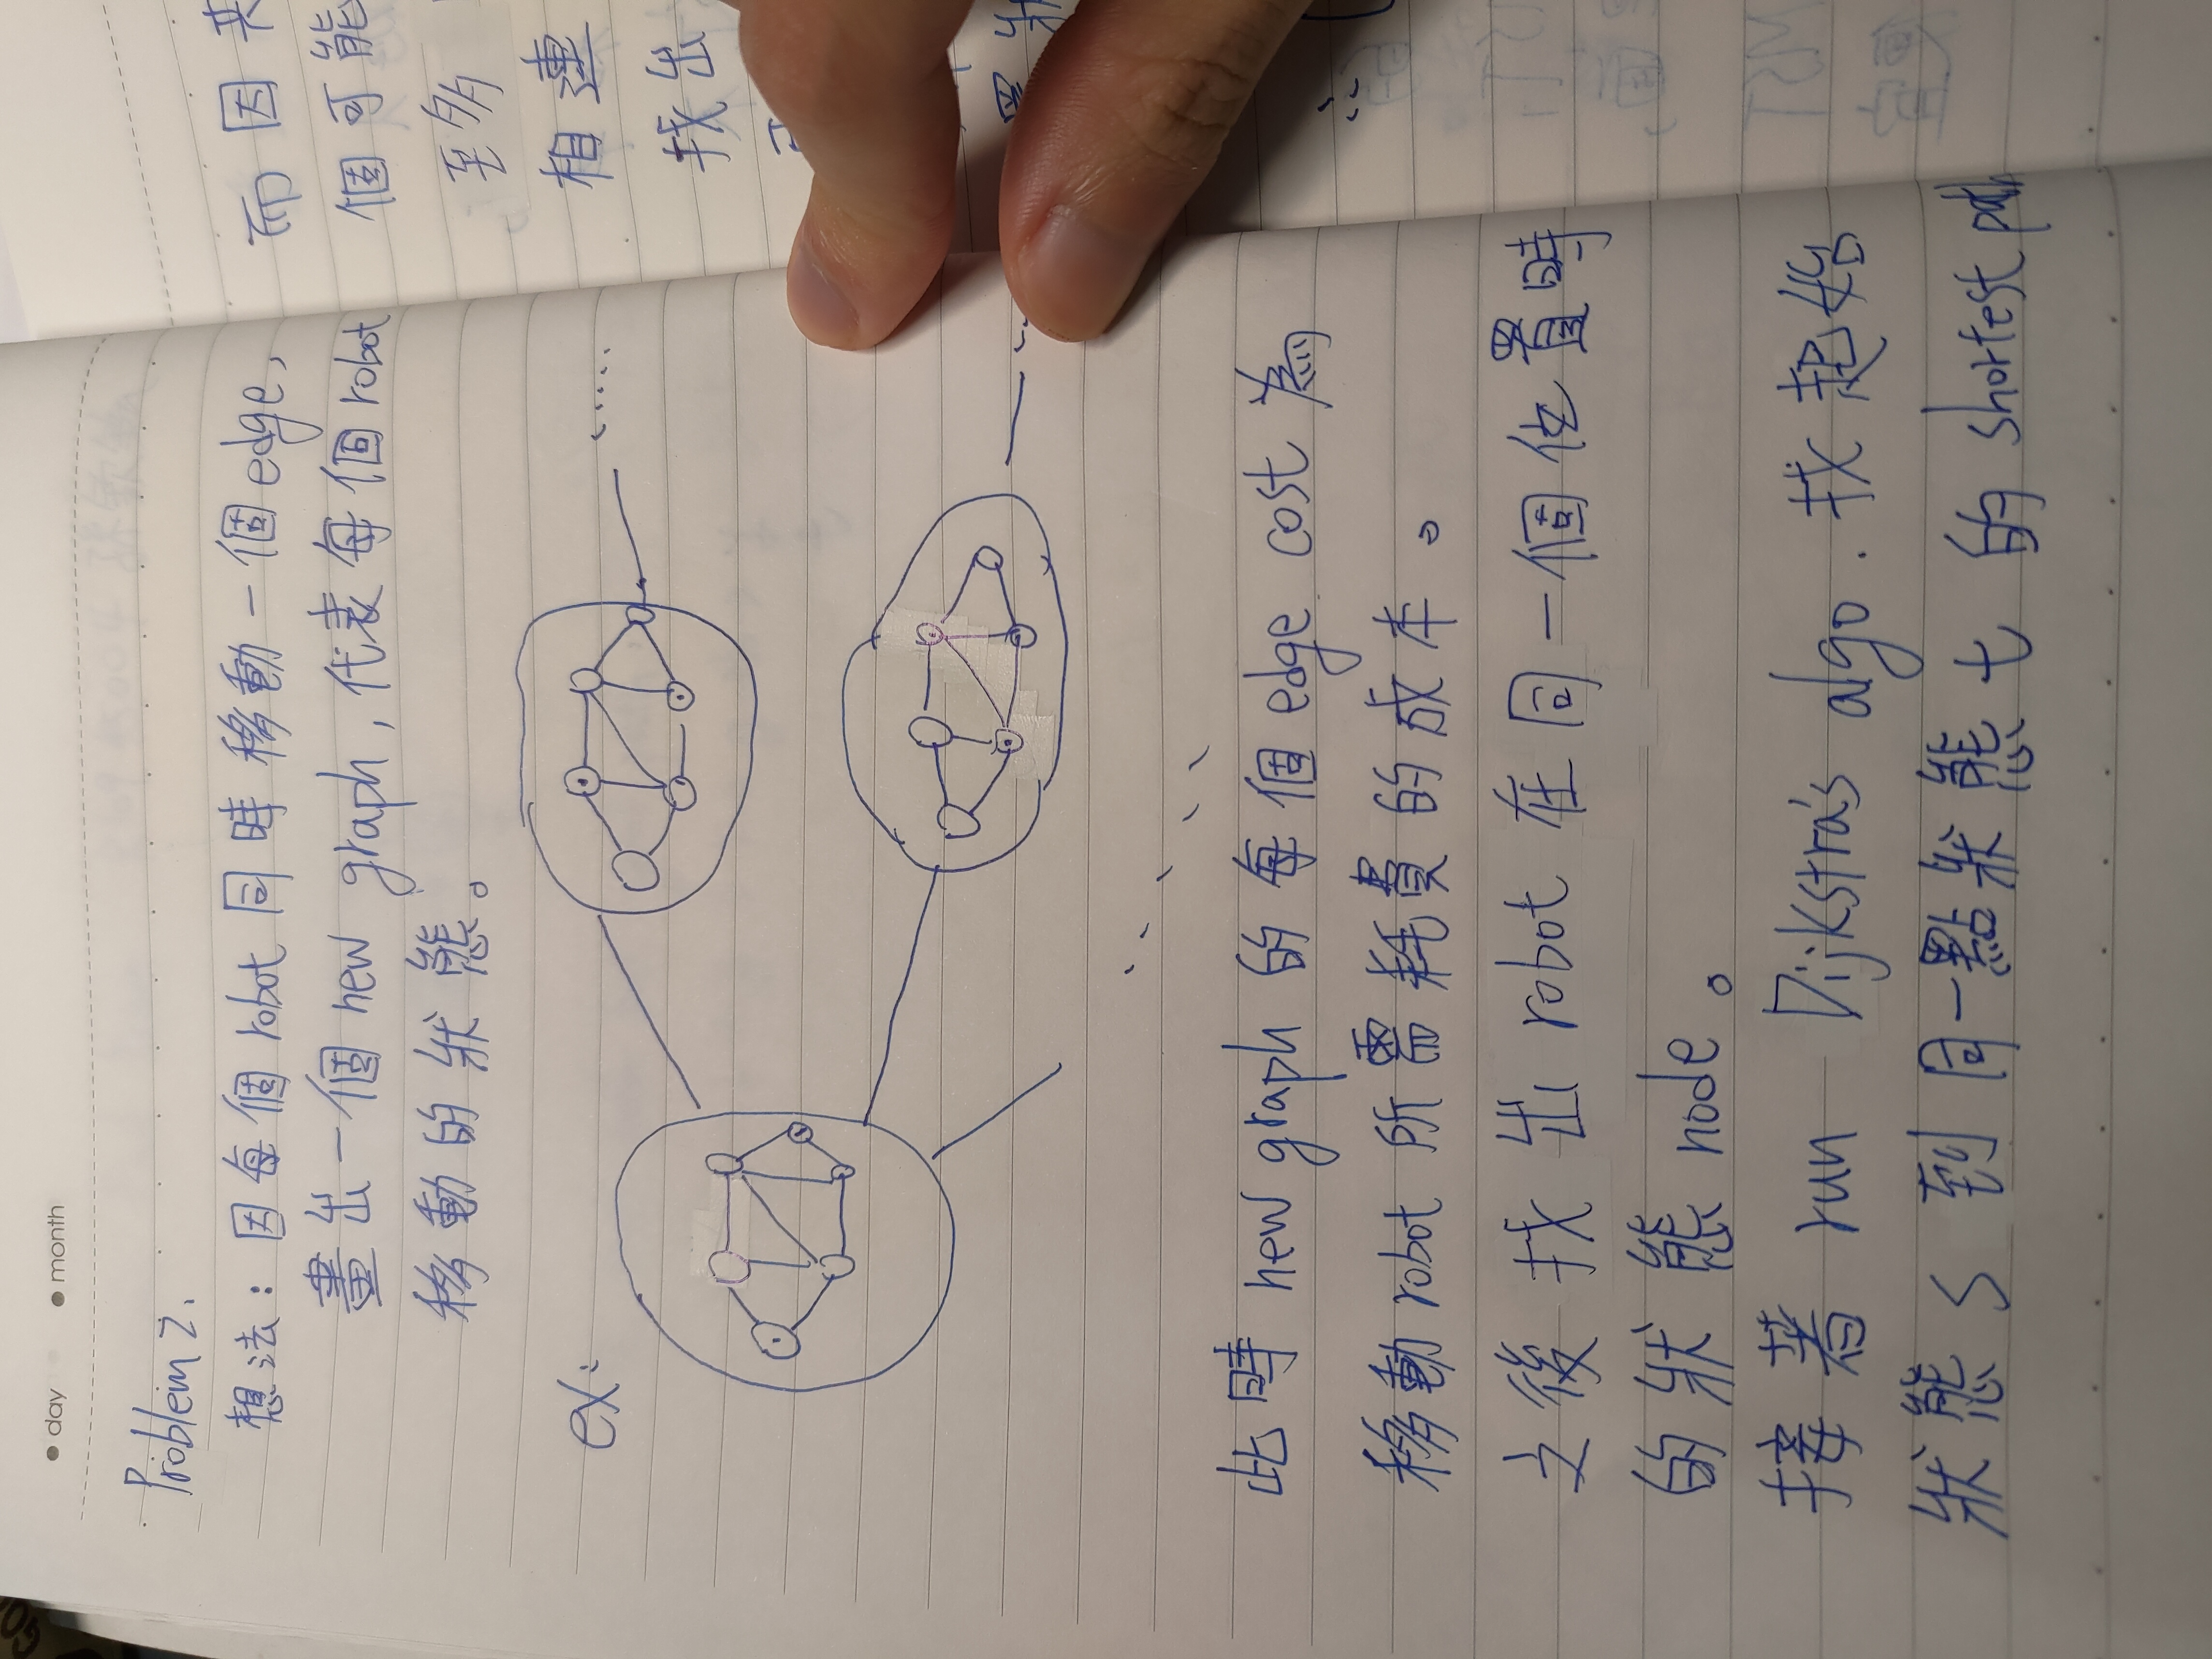 day month
Problem 2.
想法：因每個 robot 同時移動一個 edge,
畫出一個 new graph, 代表每個 robot
移動的狀態。
ex:
此時 new graph 的每個 edge cost 為
移動 robot 所需耗費的成本。
之後找出 robot 在同一個位置時
的狀態 node。
接著 run Dijkstra's algo. 找起始
狀態 s 到同一點狀態 t 的 shortest path
而因
個可能
至多
相連
找出